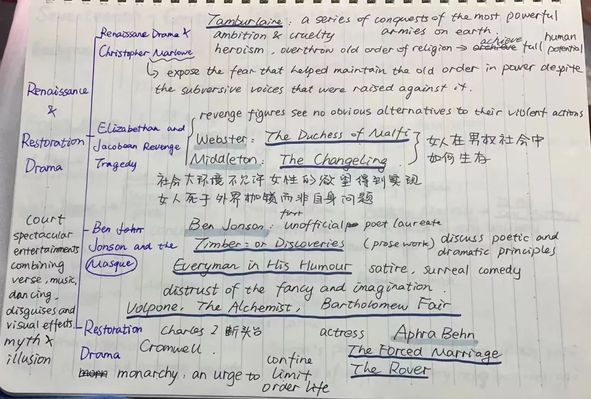 Tamburlaine : a series of conquests of the most powerful
Renaissane Drama & ambition & cruelty armies on earth
Christopher Marlowe heroism, overthrow old order of religion → achieve full human potential
↳ expose the fear that helped maintain the old order in power despite
the subversive voices that were raised against it.
Renaissance
&
Restoration
Drama
revenge figures see no obvious alternatives to their violent actions
Elizabethan and
Jacobean Revenge
Tragedy
Webster : The Duchess of Malfi
Middleton : The Changeling
女人在男权社会中
如何生存
社会大环境不允许女性的欲望得到实现
女人死于外界枷锁而非自身问题
court
spectacular
entertainments
combining
verse, music,
dancing,
disguises and
visual effects
myth &
illusion
Ben John
Jonson and the
Masque
Ben Jonson : first unofficial poet laureate
Timber : or Discoveries (prose work) discuss poetic and
dramatic principles
Everyman in His Humour satire, surreal comedy
distrust of the fancy and imagination.
Volpone, The Alchemist, Bartholomew Fair
Restoration Charles 2 断头台 actress Aphra Behn
Drama Cromwell. The Forced Marriage
The Rover
monarchy : an urge to confine
limit
order life